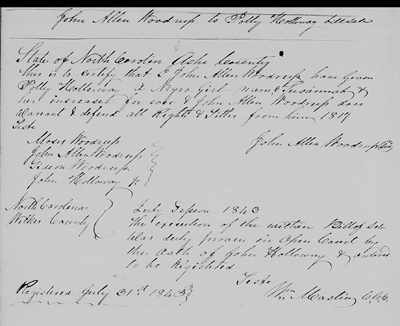 John Allen Woodrup to Polly Holloway bill sale
State of North Carolin Ashe County
this is to certify that I John Allen Woodrup have given
Polly Holloway a Negro girl name Susannah &
her increase for ever & John Allen Woodrup does
Warrant & defend all Rights & Titles from him 1817
Teste
John Allen Woodrup
Moses Woodrup
John Allen Woodrup
Gideon Woodrup
John Holloway
North Carolina
Wilkes County
July Session 1843
The execution of the written Bill of Sale
Was duly proven in Open Court by
the Oath of John Holloway & ordered
to be Registered
Teste
Wm Mastin C.C.C.
Registered July 31st 1843